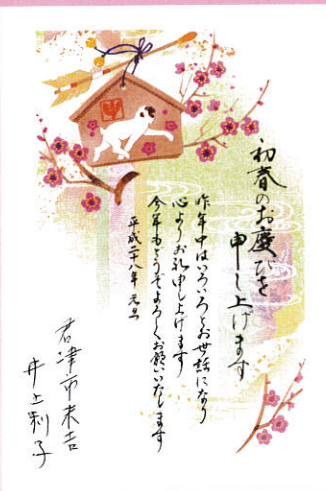 初春のお慶びを
申し上げます
昨年中はいろいろとお世話になり
心よりお礼申し上げます
今年もどうぞよろしくお願いいたします
平成二十八年 元旦
君津市末吉
井上利子